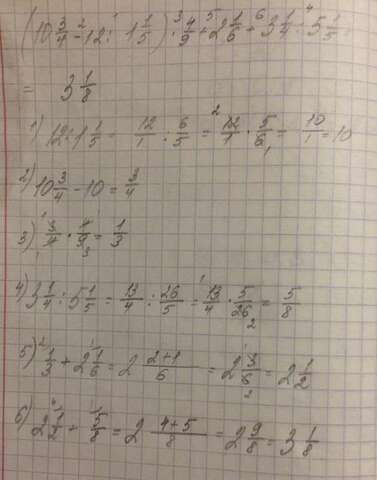 (10 3/4 - 12 : 1 1/5) · 4/9 + 2 1/6 + 3 1/4 : 5 1/5
= 3 1/8
1) 12 : 1 1/5 = 12/1 : 6/5 = 12/1 · 5/6 = 10/1 = 10
2) 10 3/4 - 10 = 3/4
3) 3/4 · 4/9 = 1/3
4) 3 1/4 : 5 1/5 = 13/4 : 26/5 = 13/4 · 5/26 = 5/8
5) 1/3 + 2 1/6 = 2 2+1/6 = 2 3/6 = 2 1/2
6) 2 1/2 + 5/8 = 2 4+5/8 = 2 9/8 = 3 1/8